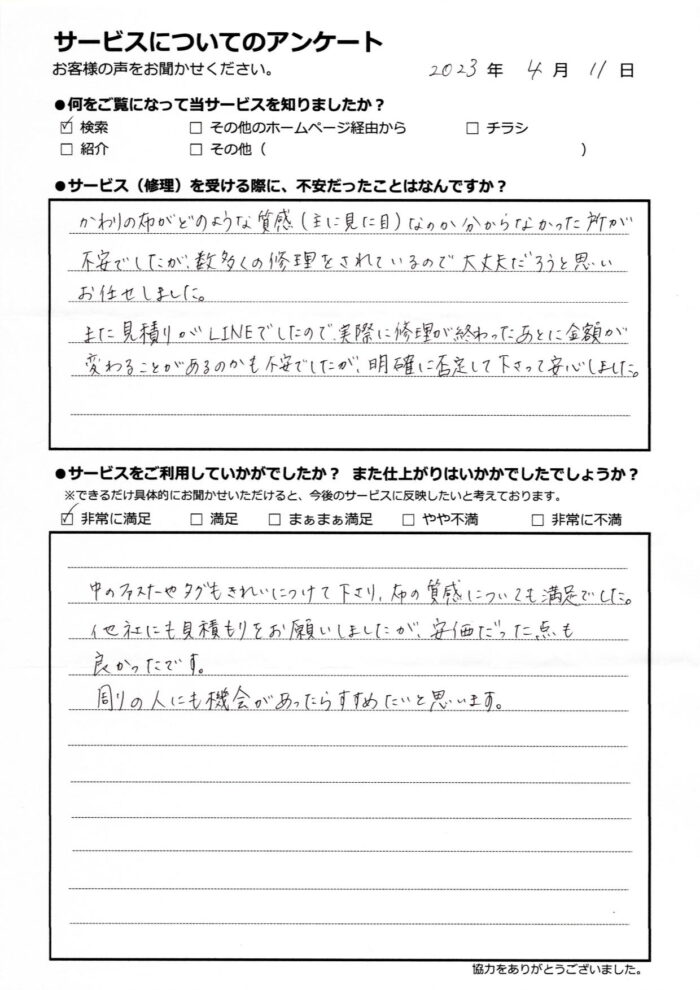 サービスについてのアンケート
お客様の声をお聞かせください。
2023 年 4 月 11 日
●何をご覧になって当サービスを知りましたか？
☑ 検索 □ その他のホームページ経由から □ チラシ
□ 紹介 □ その他（ ）
●サービス（修理）を受ける際に、不安だったことはなんですか？
かわりの布がどのような質感（主に見た目）なのか分からなかった所が
不安でしたが、数多くの修理をされているので大丈夫だろうと思い
お任せしました。
また見積りがLINEでしたので、実際に修理が終わったあとに金額が
変わることがあるのかも不安でしたが、明確に否定して下さって安心しました。
●サービスをご利用していかがでしたか？ また仕上がりはいかかでしたでしょうか？
※できるだけ具体的にお聞かせいただけると、今後のサービスに反映したいと考えております。
☑ 非常に満足 □ 満足 □ まぁまぁ満足 □ やや不満 □ 非常に不満
中のファスナーやタグもきれいにつけて下さり、布の質感についても満足でした。
他社にも見積もりをお願いしましたが、安価だった点も
良かったです。
周りの人にも機会があったらすすめたいと思います。
協力をありがとうございました。